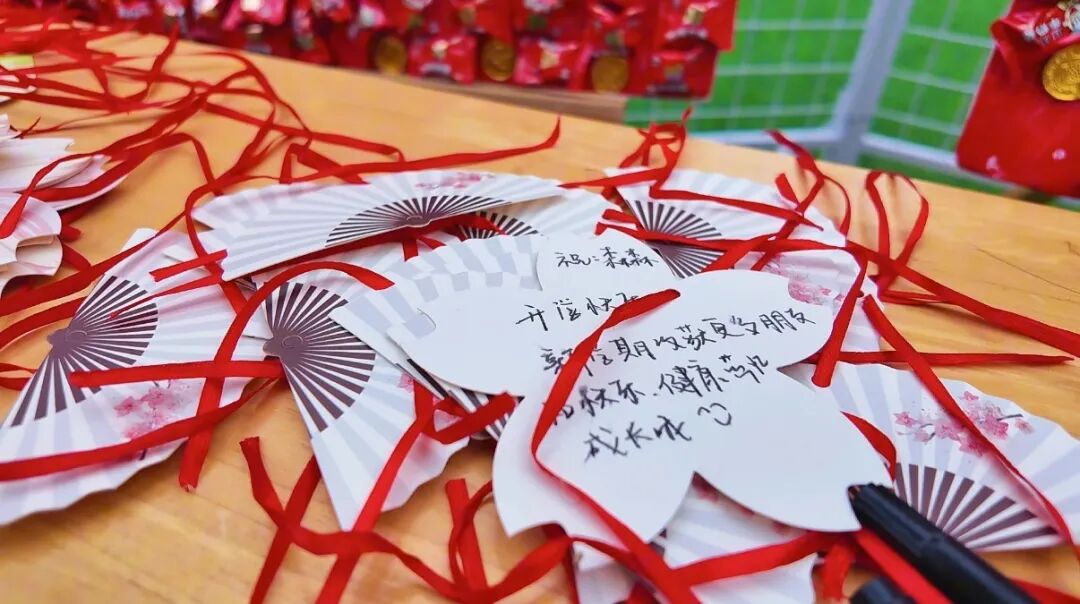 祝:森森
开学快乐
新学期收获更多朋友
和快乐、健康茁壮
成长哦